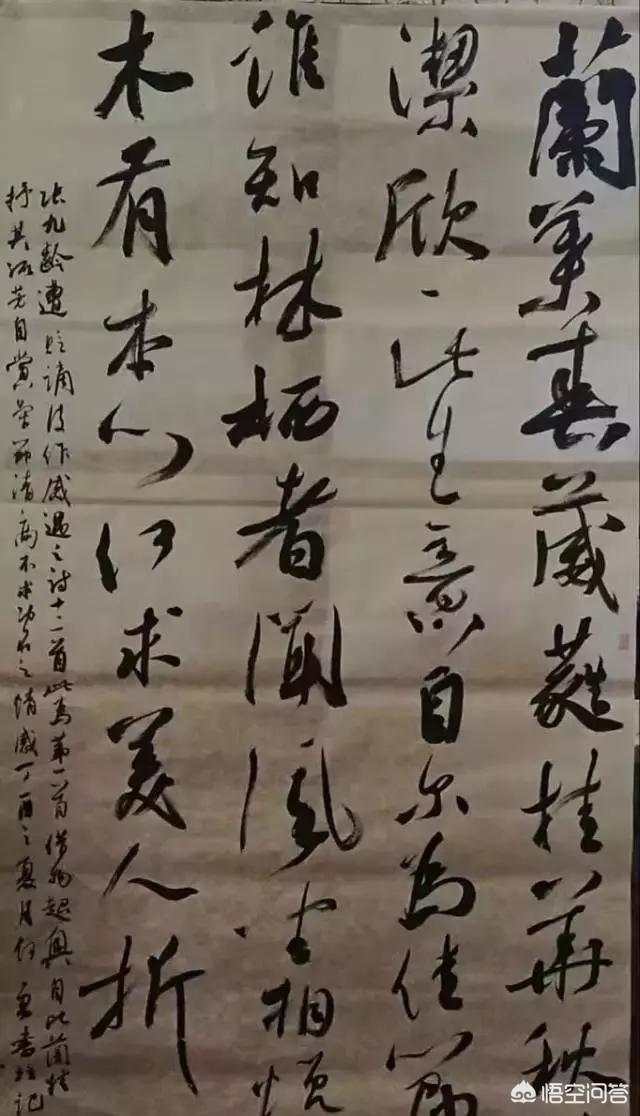 蘭葉春葳蕤桂華秋
潔欣〻此生意自尔為佳節
誰知林栖者聞風坐相悅
木有本心何求美人折
張九齡遭貶謫後作感遇之詩十二首此為第一首借物起興自比蘭桂
抒其孤芳自賞氣節清高不求功名之情感丁酉之夏月書記
悟空问答